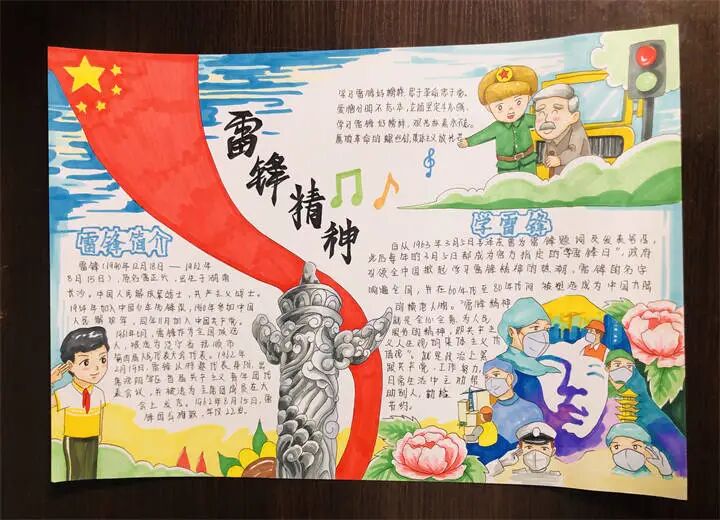 学习雷锋好榜样,忠于革命忠于党。
爱憎分明不忘本,立场坚定斗志强。
学习雷锋好榜样
雷锋精神
雷锋简介
雷锋(1940年12月18日—1962年
8月15日),原名雷正兴,出生于湖南
长沙。中国人民解放军战士,共产主义战士。
1954年加入中国少年先锋队,1960年参加中国
人民解放军,同年11月加入中国共产党。
1961年5月,雷锋作为全国候选
人,被选为辽宁省抚顺市
第四届人民代表大会代表。1962年
2月19日,雷锋以特邀代表身份,出
席沈阳军区首届共产主义青年团代
表会议,并被选为主席团成员在大
会上发言。1962年8月15日,雷
锋因公殉职,年仅22岁。
学雷锋
自从1963年3月5日毛泽东曾为雷锋题词及发表号召,
此后每年的3月5日都成为官方指定的“学雷锋日”,政府
引领全中国掀起学习雷锋精神的浪潮,雷锋的名字
响遍全国,并在60年代至80年代间被塑造成为中国大陆
的模范人物。“雷锋精神”
就是全心全意为人民
服务的精神,跟共产主
义人生观的集体主义价
值观”。就是政治上紧
跟共产党,工作努力,
日常生活中主动帮
助别人,勤俭
节约。